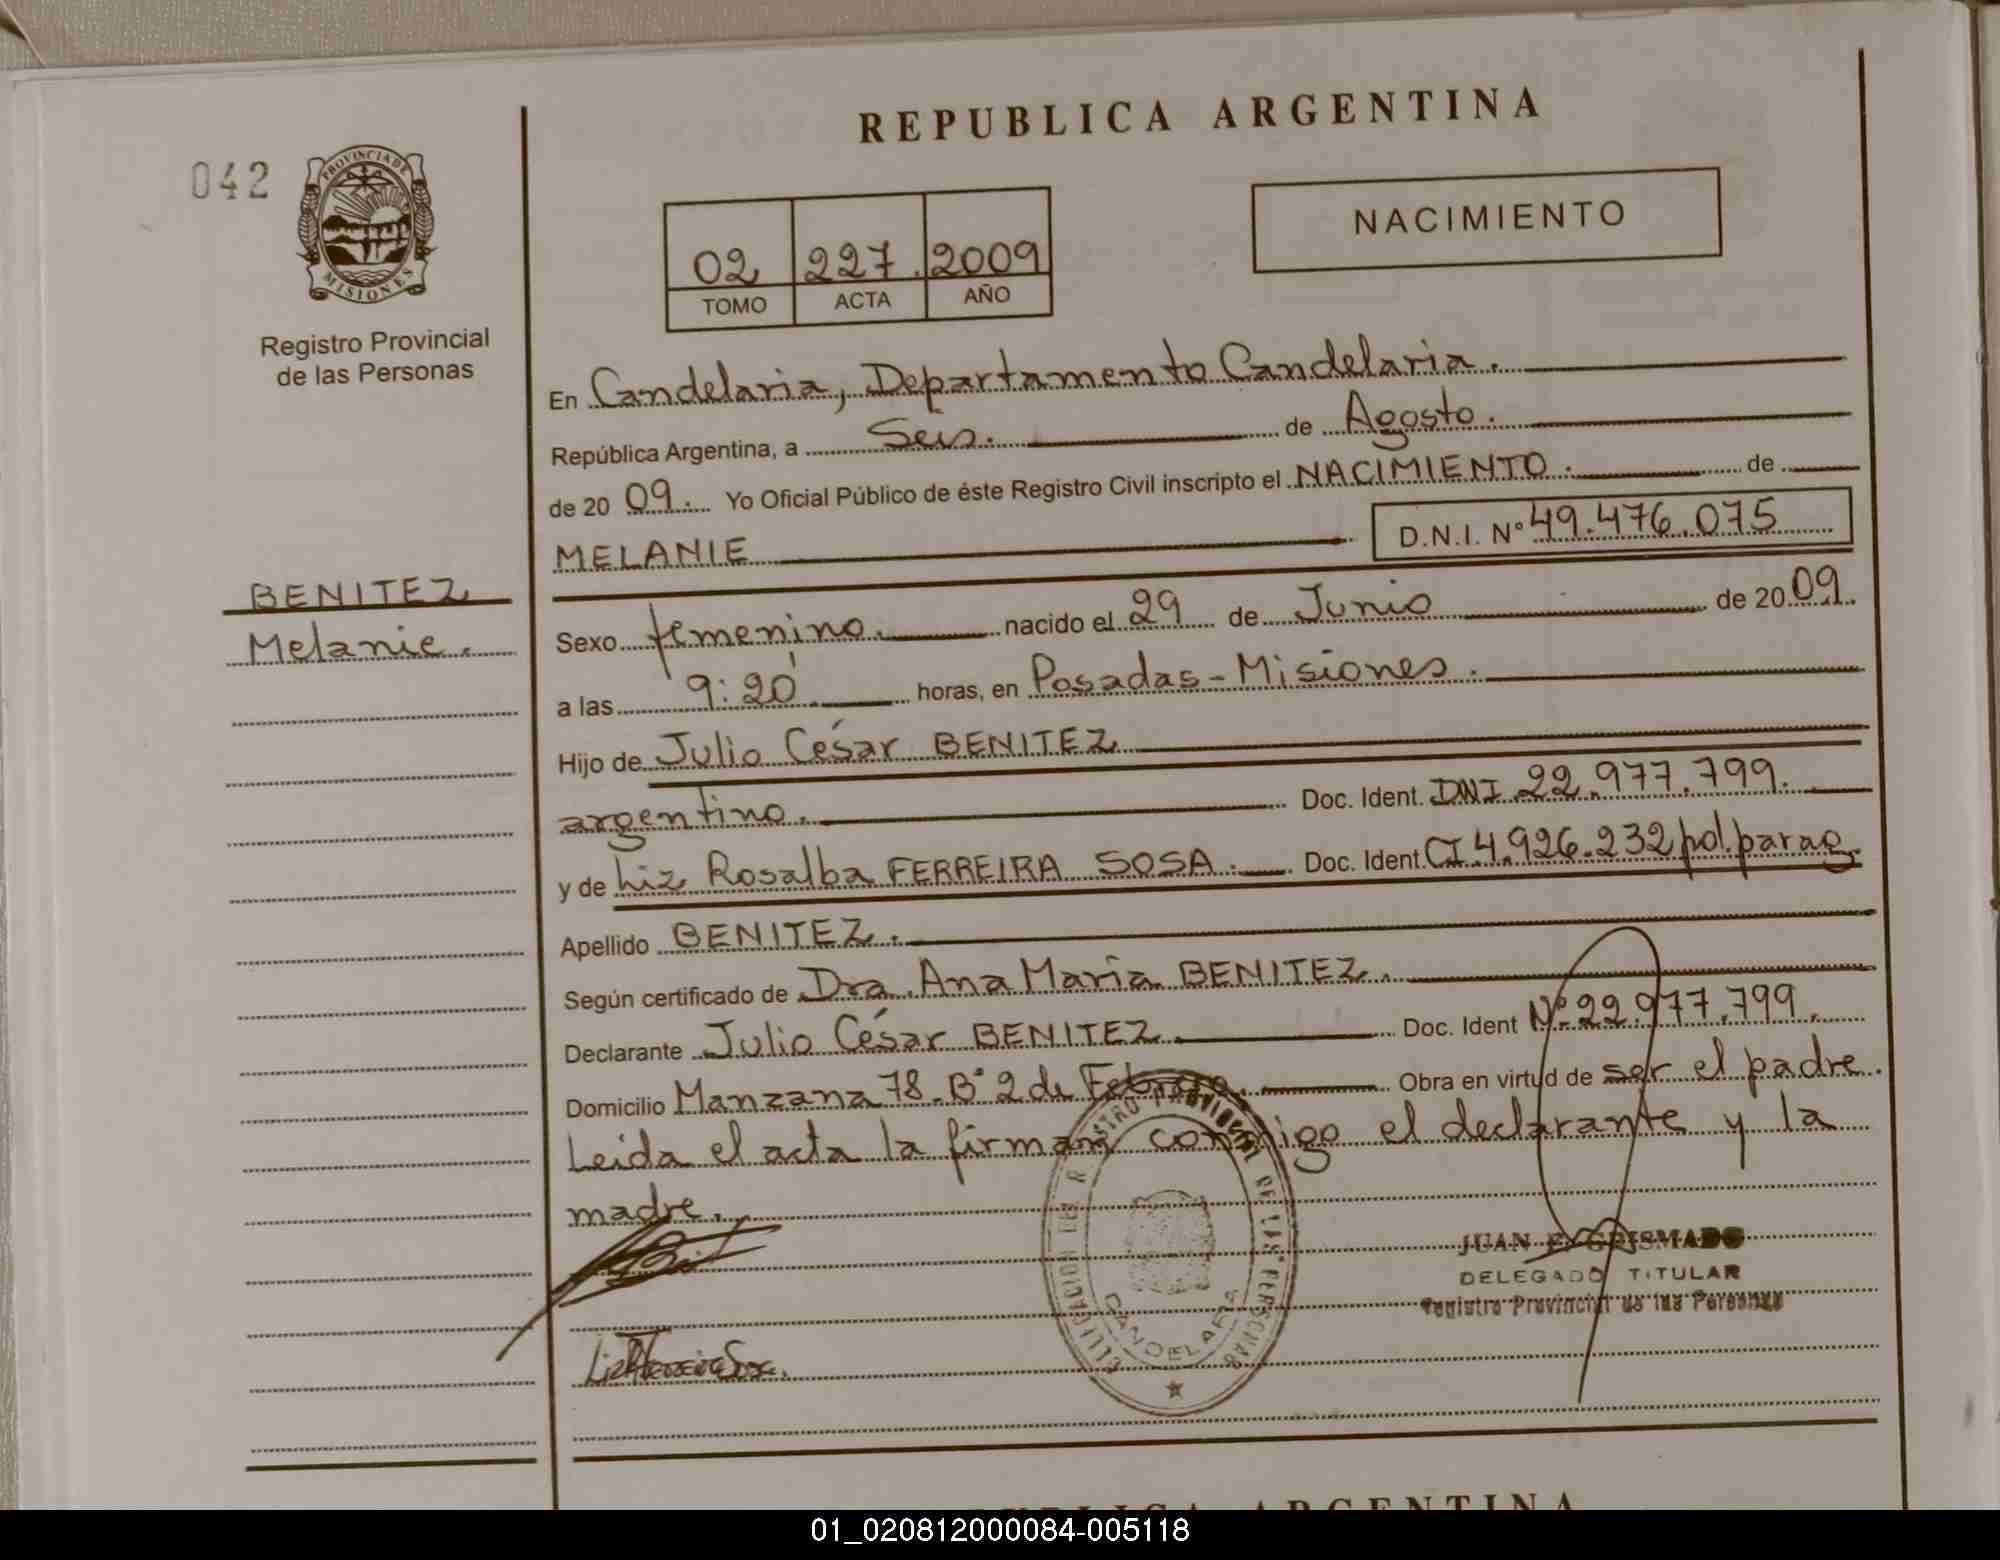 REPUBLICA ARGENTINA
042
PROVINCIA DE
MISIONES
Registro Provincial
de las Personas
02 227. 2009
TOMO ACTA AÑO
NACIMIENTO
En Candelaria, Departamento Candelaria.
República Argentina, a Seis. de Agosto.
de 20 09. Yo Oficial Público de éste Registro Civil inscripto el NACIMIENTO. de
MELANIE D.N.I. Nº 49.476.075
BENITEZ
Melanie.
Sexo femenino. nacido el 29 de Junio de 20 09.
a las 9:20 horas, en Posadas-Misiones.
Hijo de Julio César BENITEZ
argentino. Doc. Ident. DNI 22.977.799.
y de Liz Rosalba FERREIRA SOSA. Doc. Ident. CI 4.926.232 pol.parag.
Apellido BENITEZ.
Según certificado de Dra. Ana Maria BENITEZ.
Declarante Julio César BENITEZ Doc. Ident Nº 22.977.799.
Domicilio Manzana 78. Bº 2 de Febrero. Obra en virtud de ser el padre.
Leida el acta la firman conmigo el declarante y la
madre.
REGISTRO PROVINCIAL DE LAS PERSONAS
CANDELARIA
JUAN E. GRISMADO
DELEGADO TITULAR
Registro Provincial de las Personas
REPUBLICA ARGENTINA
01_020812000084-005118